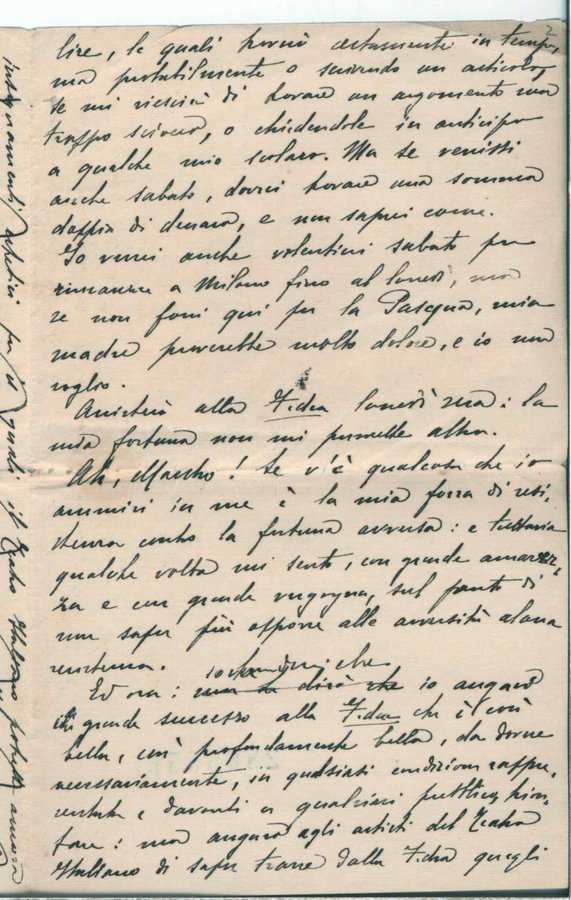 lire, le quali potrei certamente in tempo,
ma probabilmente o scrivendo un articolo,
se mi riescirà di trovare un argomento non
troppo sciocco, o chiedendole in anticipo
a qualche mio scolaro. Ma se venissi
anche sabato, dovrei trovare una somma
doppia di denaro, e non saprei come.
Io verrei anche volentieri sabato per
rimanere a Milano fino al lunedì, ma
se non fossi qui per la Pasqua, mia
madre proverebbe molto dolore, e io non
voglio.
Assisterò alla Fedra lunedì sera: la
mia fortuna non mi permette altro.
Ah, Maestro! Se v'è qualcosa che io
ammiri in me è la mia forza di resi-
stenza contro la fortuna avversa: e tuttavia
qualche volta mi sento, con grande amarez-
za e con grande vergogna, sul punto di
non saper più opporre alle avversità alcuna
resistenza.
Ed ora: io auguro
grande successo alla Fedra che è così
bella, così profondamente bella, da dovere
necessariamente, in qualsiasi condizione rappre-
sentata, davanti a qualsiasi pubblico, trion-
fare: ma auguro agli artisti del Teatro
Italiano di saper trarre dalla Fedra quegli
insegnamenti per i quali il Teatro Italiano potrebbe ancora